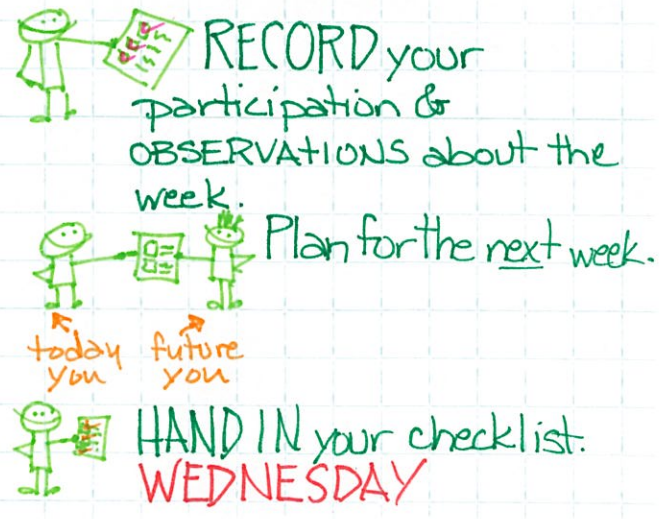 RECORD your
participation &
OBSERVATIONS about the
week.
Plan for the next week.
today future
you you
HAND IN your checklist.
WEDNESDAY